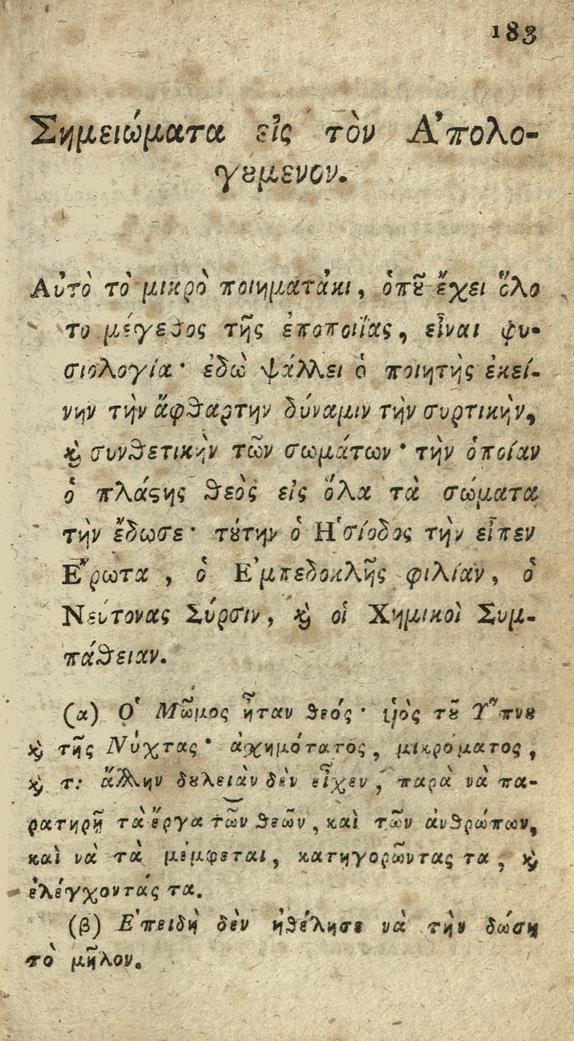 183
Σημειώματα εἰς τὸν Α'πολο-
γȣμενον.
Αὐτὸ τὸ μικρὸ ποιηματάκι, ὁπȣ͂ ἔχει ὅλο
το μέγεθος τῆς ἐποποιΐας, εἶναι φυ-
σιολογία· ἐδὼ ψάλλει ὁ ποιητὴς ἐκεί-
νην τὴν ἄφθαρτην δύναμιν τὴν συρτικὴν,
ϗ̀ συνθετικὴν τῶν σωμάτων· τὴν ὁποίαν
ὁ πλάϛης Θεὸς εἰς ὅλα τὰ σώματα
τὴν ἔδωσε· τȣ́την ὁ Η῾σίοδος τὴν εἶπεν
Ε῎ρωτα, ὁ Ε᾿μπεδοκλῆς φιλίαν, ὁ
Νεύτονας Σύρσιν, ϗ̀ οἱ Χημικοὶ Συμ-
πάθειαν.
(α) Ο῾ Μῶμος ἦταν θεός· ὑιὸς τȣ͂ Υ῞πνȣ
ϗ̀ τῆς Νύχτας· ἀχημότατος, μικρόματος,
ϗ̀ τ: ἄλλην δȣλειὰν δὲν εἶχεν, παρὰ νὰ πα-
ρατηρῇ τὰ ἔργα τῶν θεῶν, καὶ τῶν ἀνθρώπων,
καὶ νὰ τὰ μέμφεται, κατηγορῶντας τα, ϗ̀
ἐλέγχοντάς τα.
(β) Ε᾿πειδὴ δὲν ἠθέλησε νὰ τὴν δώσῃ
τὸ μῆλον.